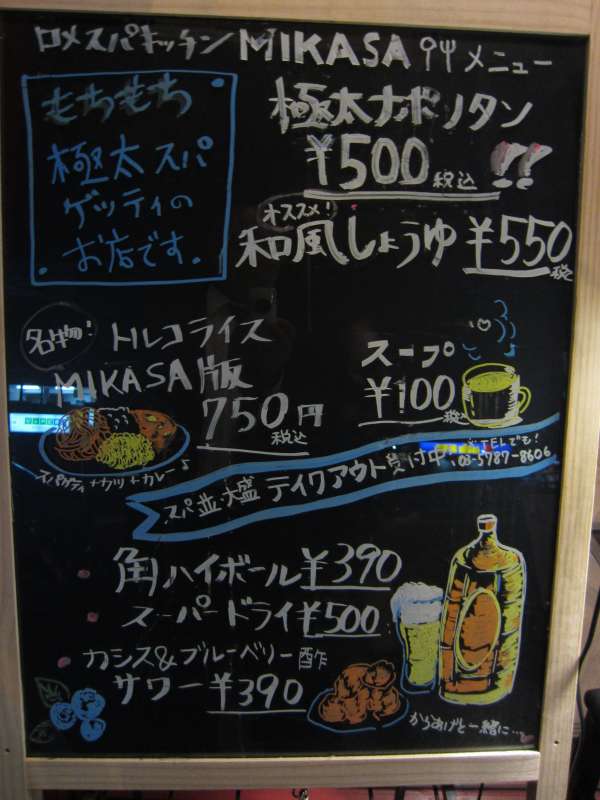 ロメスパキッチン MIKASA メニュー
もちもち
極太スパ
ゲッティの
お店です。
極太ナポリタン
¥500 税込 !!
オススメ!
和風しょうゆ ¥550 税込
名物! トルコライス
MIKASA版
750円
税込
スパゲティ+カツ+カレー♪
スープ
¥100 税込
スパ並・大盛 テイクアウト受付中♪ TELでも!
03-5787-8606
角ハイボール ¥390
スーパードライ ¥500
カシス&ブルーベリー酢
サワー ¥390
からあげと一緒に…♪